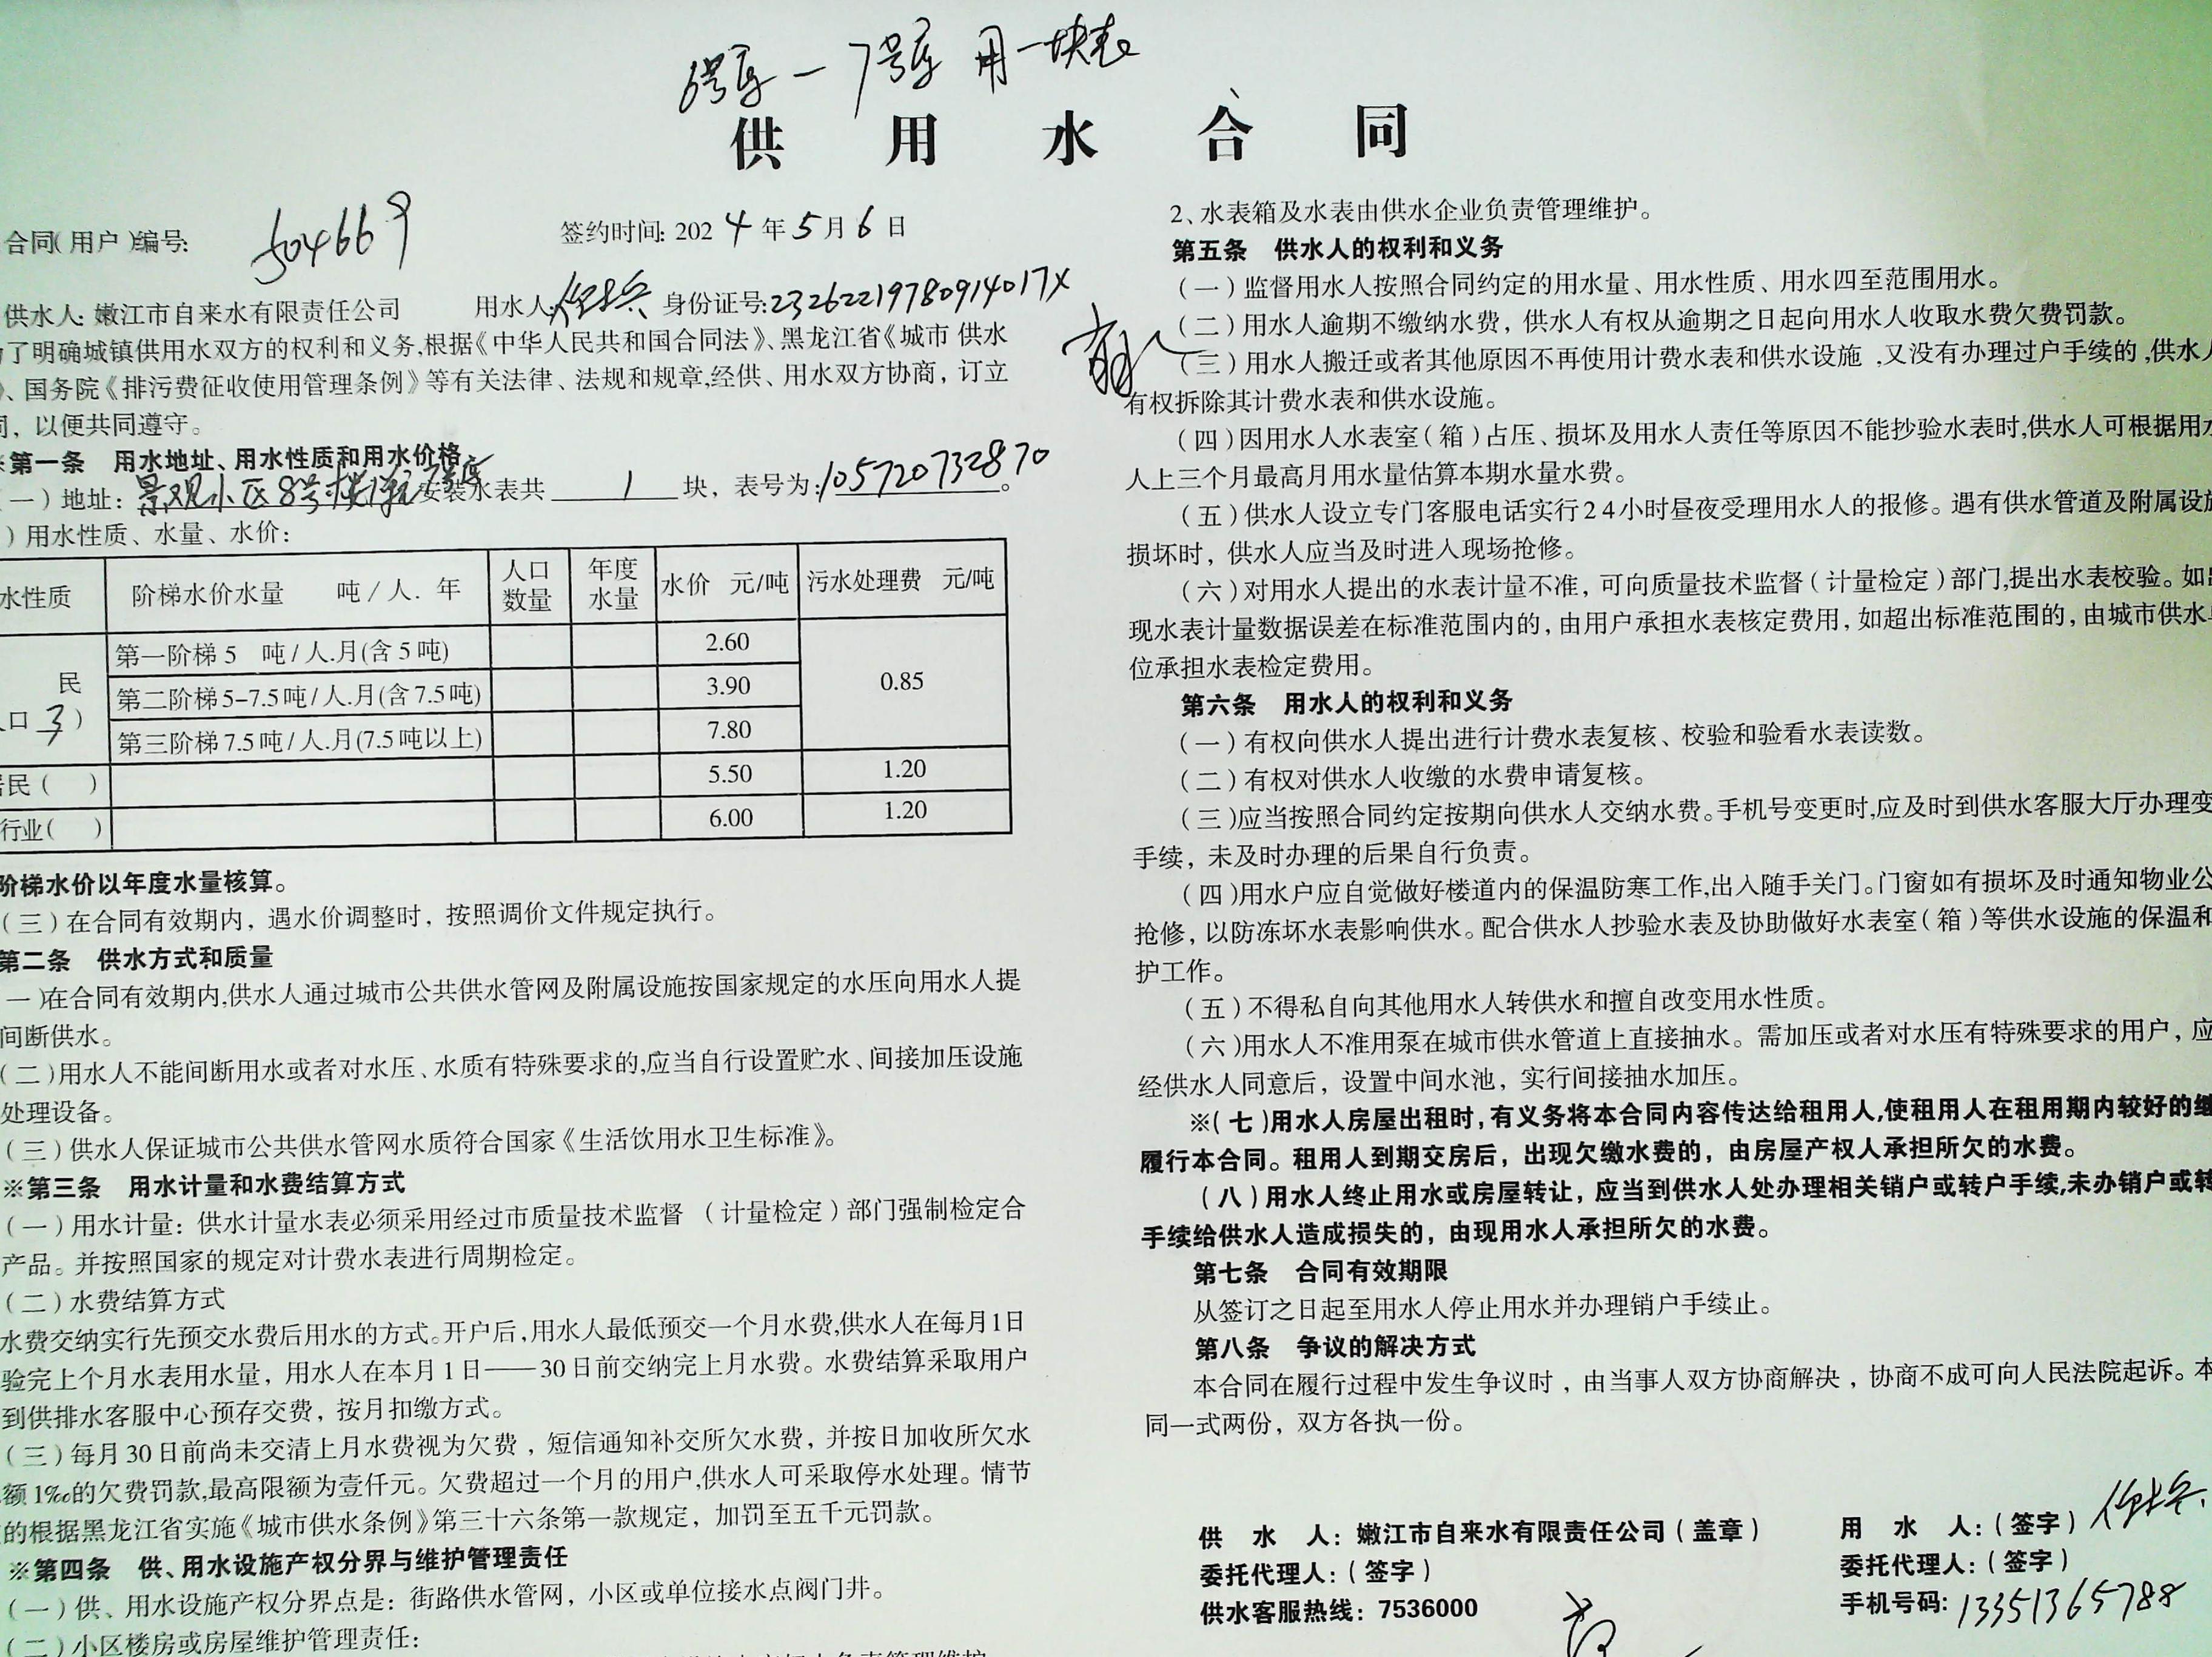 6号库一7号库 用一块表
供 用 水 合 同
合同(用户)编号: 504669 签约时间: 2024年5月6日
供水人: 嫩江市自来水有限责任公司 用水人: 身份证号:23262219780914017X
了明确城镇供用水双方的权利和义务,根据《中华人民共和国合同法》、黑龙江省《城市 供水
》、国务院《排污费征收使用管理条例》等有关法律、法规和规章,经供、用水双方协商，订立
同，以便共同遵守。
※第一条 用水地址、用水性质和用水价格
（一）地址：景观小区8号楼 安装水表共 1 块，表号为:105720732870。
）用水性质、水量、水价：
水性质 阶梯水价水量 吨/人.年 人口数量 年度水量 水价 元/吨 污水处理费 元/吨
民
口3）
第一阶梯5 吨/人.月(含5吨) 2.60 0.85
第二阶梯5-7.5吨/人.月(含7.5吨) 3.90
第三阶梯7.5吨/人.月(7.5吨以上) 7.80
居民( ) 5.50 1.20
行业( ) 6.00 1.20
阶梯水价以年度水量核算。
（三）在合同有效期内，遇水价调整时，按照调价文件规定执行。
第二条 供水方式和质量
一)在合同有效期内,供水人通过城市公共供水管网及附属设施按国家规定的水压向用水人提
间断供水。
（二)用水人不能间断用水或者对水压、水质有特殊要求的,应当自行设置贮水、间接加压设施
处理设备。
（三）供水人保证城市公共供水管网水质符合国家《生活饮用水卫生标准》。
※第三条 用水计量和水费结算方式
（一）用水计量：供水计量水表必须采用经过市质量技术监督 （计量检定）部门强制检定合
产品。并按照国家的规定对计费水表进行周期检定。
（二）水费结算方式
水费交纳实行先预交水费后用水的方式。开户后,用水人最低预交一个月水费,供水人在每月1日
验完上个月水表用水量，用水人在本月1日——30日前交纳完上月水费。水费结算采取用户
到供排水客服中心预存交费，按月扣缴方式。
（三）每月30日前尚未交清上月水费视为欠费，短信通知补交所欠水费，并按日加收所欠水
额1‰的欠费罚款,最高限额为壹仟元。欠费超过一个月的用户,供水人可采取停水处理。情节
的根据黑龙江省实施《城市供水条例》第三十六条第一款规定，加罚至五千元罚款。
※第四条 供、用水设施产权分界与维护管理责任
（一）供、用水设施产权分界点是：街路供水管网，小区或单位接水点阀门井。
（二）小区楼房或房屋维护管理责任：
2、水表箱及水表由供水企业负责管理维护。
第五条 供水人的权利和义务
（一）监督用水人按照合同约定的用水量、用水性质、用水四至范围用水。
（二）用水人逾期不缴纳水费，供水人有权从逾期之日起向用水人收取水费欠费罚款。
（三）用水人搬迁或者其他原因不再使用计费水表和供水设施，又没有办理过户手续的,供水人
有权拆除其计费水表和供水设施。
（四）因用水人水表室（箱）占压、损坏及用水人责任等原因不能抄验水表时,供水人可根据用水
人上三个月最高月用水量估算本期水量水费。
（五）供水人设立专门客服电话实行24小时昼夜受理用水人的报修。遇有供水管道及附属设施
损坏时，供水人应当及时进入现场抢修。
（六）对用水人提出的水表计量不准，可向质量技术监督（计量检定）部门,提出水表校验。如出
现水表计量数据误差在标准范围内的，由用户承担水表核定费用，如超出标准范围的，由城市供水单
位承担水表检定费用。
第六条 用水人的权利和义务
（一）有权向供水人提出进行计费水表复核、校验和验看水表读数。
（二）有权对供水人收缴的水费申请复核。
（三)应当按照合同约定按期向供水人交纳水费。手机号变更时,应及时到供水客服大厅办理变
手续，未及时办理的后果自行负责。
（四)用水户应自觉做好楼道内的保温防寒工作,出入随手关门。门窗如有损坏及时通知物业公
抢修，以防冻坏水表影响供水。配合供水人抄验水表及协助做好水表室（箱）等供水设施的保温和
护工作。
（五）不得私自向其他用水人转供水和擅自改变用水性质。
（六)用水人不准用泵在城市供水管道上直接抽水。需加压或者对水压有特殊要求的用户，应
经供水人同意后，设置中间水池，实行间接抽水加压。
※（七)用水人房屋出租时，有义务将本合同内容传达给租用人,使租用人在租用期内较好的继
履行本合同。租用人到期交房后，出现欠缴水费的，由房屋产权人承担所欠的水费。
（八）用水人终止用水或房屋转让，应当到供水人处办理相关销户或转户手续,未办销户或转
手续给供水人造成损失的，由现用水人承担所欠的水费。
第七条 合同有效期限
从签订之日起至用水人停止用水并办理销户手续止。
第八条 争议的解决方式
本合同在履行过程中发生争议时，由当事人双方协商解决，协商不成可向人民法院起诉。本
同一式两份，双方各执一份。
供 水 人：嫩江市自来水有限责任公司（盖章） 用 水 人：（签字）
委托代理人：（签字） 委托代理人：（签字）
供水客服热线：7536000 手机号码: 13351365788